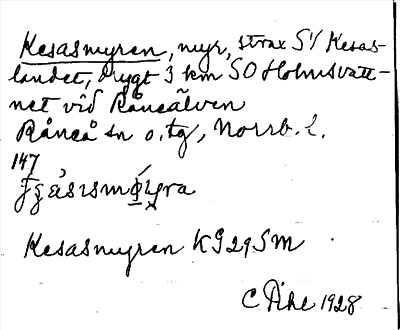 Kesasmyren, myr, strax SV Kesas-
landet, drygt 3 km SO Holmsvatt-
net vid Råneälven
Råneå sn o. tg, Norrb. l.
147
Kesasmyren KG29SM
C Pihl 1928